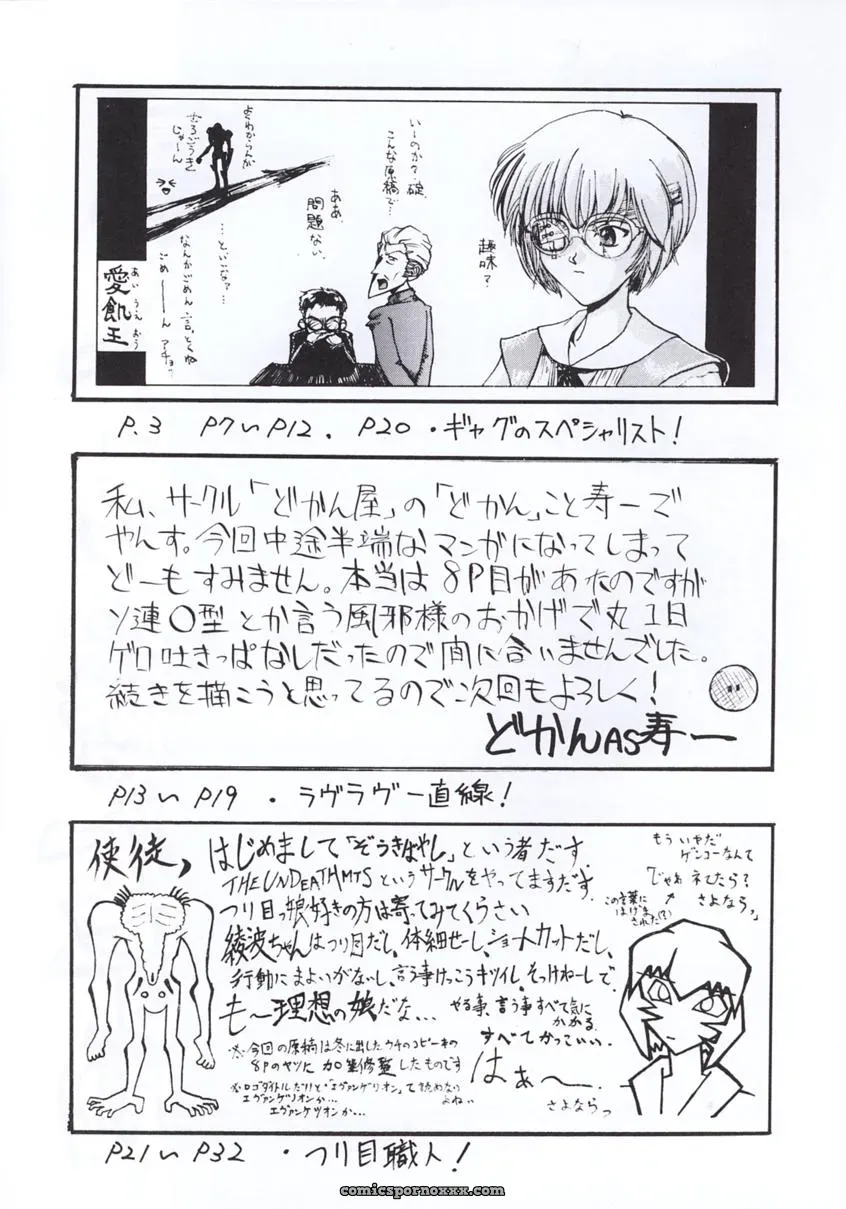 よくわからんが
むろごうき
じゃーん
いーのか？碇、
こんな原稿で…
ああ、
問題ない、
…といいな？…
なんかごめん 言っとくね
ごめーーん アチョ？
趣味？
あいうえおう
愛飢王
P.3 P7〜P12. P20・ギャグのスペシャリスト！
私、サークル「どかん屋」の「どかん」こと寿一で
やんす。今回中途半端なマンガになってしまって
どーもすみません。本当は8P目があったのですが
ソ連〇型とか言う風邪様のおかげで丸1日
ゲロ吐きっぱなしだったので間に合いませんでした。
続きを描こうと思ってるので次回もよろしく！
どかんAS寿一
P13〜P19 ・ラヴラヴ一直線！
使徒、
はじめまして「ぞうきばやし」という者だす。
THE UNDEATHMTSというサークルをやってますだす。
つり目っ娘好きの方は寄ってみてくらさい
綾波ちゃんはつり目だし、体細せーし、ショートカットだし、
行動にまよいがないし、言う事けっこうキツイし、そっけねーしで、
も〜理想の娘だな…
やる事、言う事すべて気に
かかる。
すべてかっこいい。
はぁ〜
※今回の原稿は冬に出したウチのコピー本の
8Pのヤツに加筆修整したものです
※ロゴタイトルだけど・エヴァンゲリオン」て読めない
よね…
エヴァンゲソオンか…
エヴァンケツオンか…
もういやだ
ゲンコーなんて
「じゃぁネてたら？
さよなら」
この言葉に
はげま
された(?)
さよならっ
P21〜P32 ・つり目職人！
comicspornoxxx.com